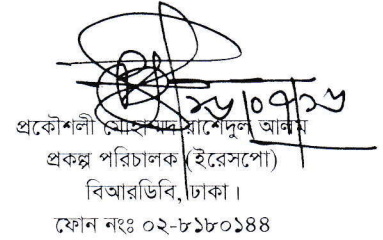 ১৮/০৭/১৬
প্রকৌশলী মোহাম্মদ রাশেদুল আলম
প্রকল্প পরিচালক (ইরেসপো)
বিআরডিবি, ঢাকা।
ফোন নংঃ ০২-৮১৮০১৪৪